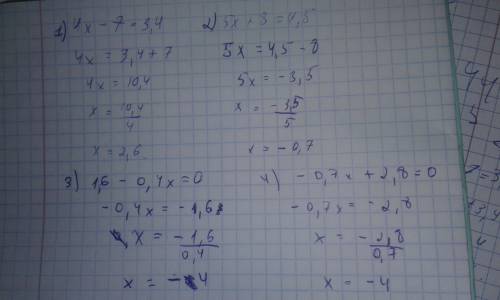 1) 4x - 7 = 3,4
4x = 3,4 + 7
4x = 10,4
x = 10,4/4
x = 2,6
2) 5x + 8 = 4,5
5x = 4,5 - 8
5x = -3,5
x = -3,5/5
x = -0,7
3) 1,6 - 0,4x = 0
-0,4x = -1,6
x = -1,6/0,4
x = -4
4) -0,7x + 2,8 = 0
-0,7x = -2,8
x = -2,8/0,7
x = -4